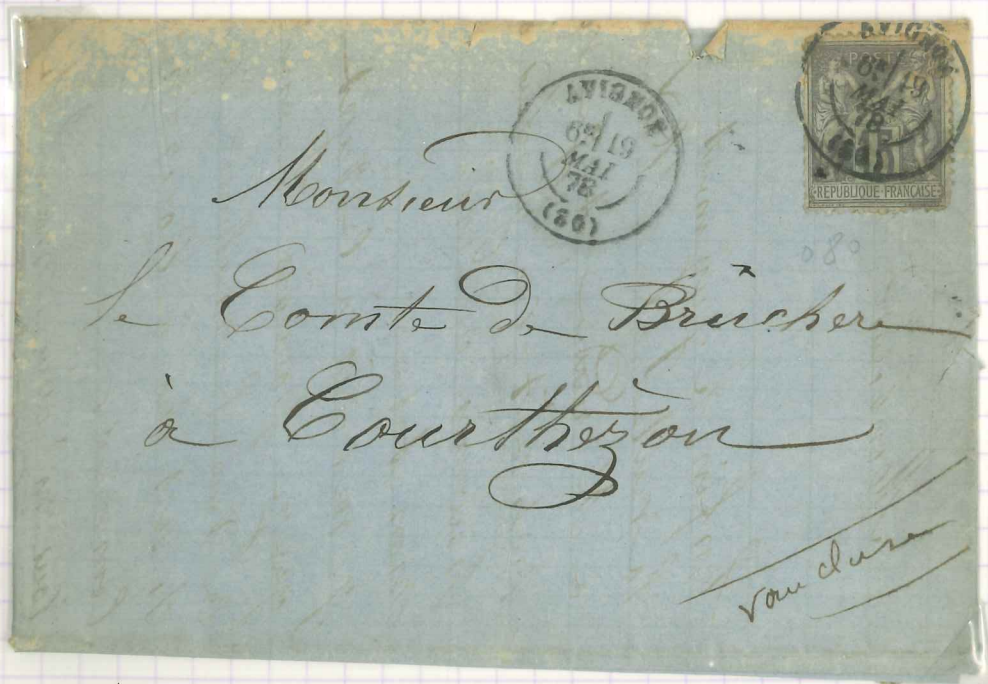 AVIGNON
6E 19
MAI
78
(86)
AVIGNON
6E 19
MAI
78
(86)
15
REPUBLIQUE FRANÇAISE
080
Monsieur
le Comte de Brüchere
à Courthézon
vaucluse